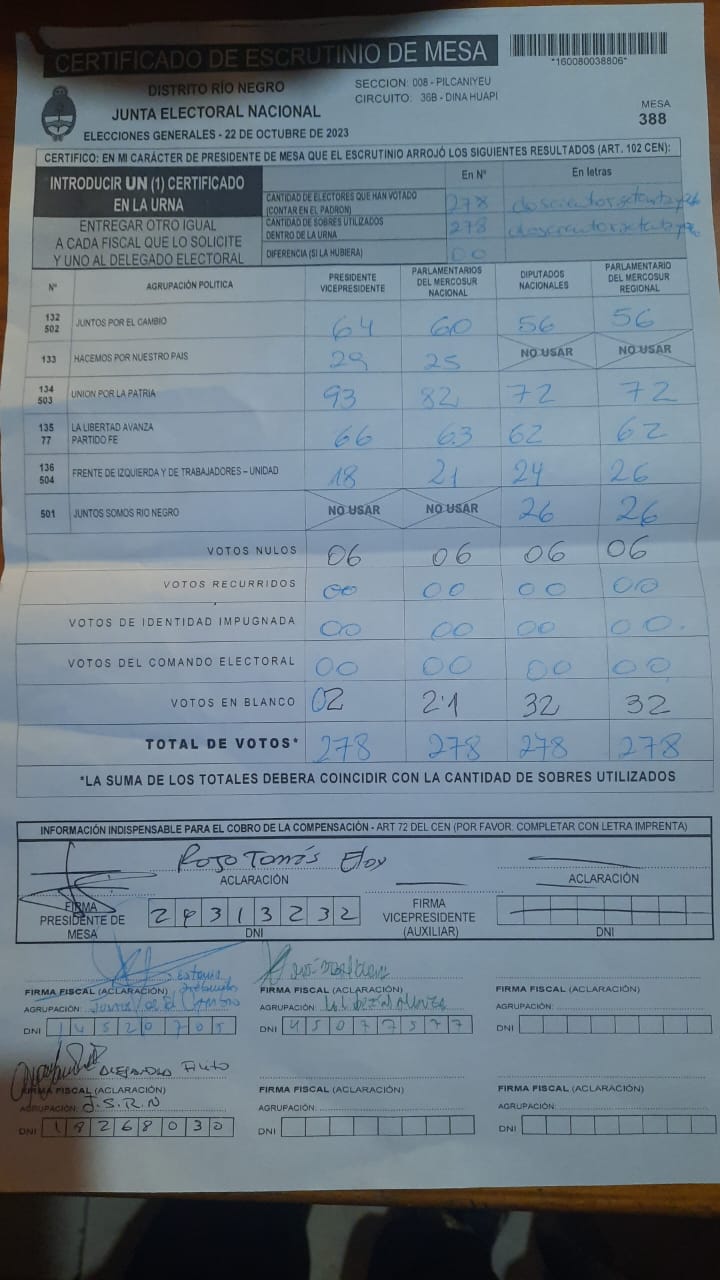 CERTIFICADO DE ESCRUTINIO DE MESA
*160080038806*
DISTRITO RÍO NEGRO
JUNTA ELECTORAL NACIONAL
ELECCIONES GENERALES - 22 DE OCTUBRE DE 2023
SECCION: 008 - PILCANIYEU
CIRCUITO: 36B - DINA HUAPI
MESA
388
CERTIFICO: EN MI CARÁCTER DE PRESIDENTE DE MESA QUE EL ESCRUTINIO ARROJÓ LOS SIGUIENTES RESULTADOS (ART. 102 CEN):
INTRODUCIR UN (1) CERTIFICADO
EN LA URNA
ENTREGAR OTRO IGUAL
A CADA FISCAL QUE LO SOLICITE
Y UNO AL DELEGADO ELECTORAL
En Nº En letras
CANTIDAD DE ELECTORES QUE HAN VOTADO
(CONTAR EN EL PADRON) 278
CANTIDAD DE SOBRES UTILIZADOS
DENTRO DE LA URNA 278
DIFERENCIA (SI LA HUBIERA) 00
Nº AGRUPACIÓN POLITICA PRESIDENTE VICEPRESIDENTE PARLAMENTARIOS DEL MERCOSUR NACIONAL DIPUTADOS NACIONALES PARLAMENTARIO DEL MERCOSUR REGIONAL
132 502 JUNTOS POR EL CAMBIO 64 60 56 56
133 HACEMOS POR NUESTRO PAIS 29 25 NO USAR NO USAR
134 503 UNION POR LA PATRIA 93 82 72 72
135 77 LA LIBERTAD AVANZA PARTIDO FE 66 63 62 62
136 504 FRENTE DE IZQUIERDA Y DE TRABAJADORES – UNIDAD 18 21 24 26
501 JUNTOS SOMOS RIO NEGRO NO USAR NO USAR 26 26
VOTOS NULOS 06 06 06 06
VOTOS RECURRIDOS 00 00 00 00
VOTOS DE IDENTIDAD IMPUGNADA 00 00 00 00.
VOTOS DEL COMANDO ELECTORAL 00 00 00 00
VOTOS EN BLANCO 02 21 32 32
TOTAL DE VOTOS* 278 278 278 278
*LA SUMA DE LOS TOTALES DEBERA COINCIDIR CON LA CANTIDAD DE SOBRES UTILIZADOS
INFORMACIÓN INDISPENSABLE PARA EL COBRO DE LA COMPENSACIÓN - ART 72 DEL CEN (POR FAVOR: COMPLETAR CON LETRA IMPRENTA)
Rojo Tomás Eloy
ACLARACIÓN ACLARACIÓN
FIRMA
PRESIDENTE DE
MESA
24313232
DNI
FIRMA
VICEPRESIDENTE
(AUXILIAR)
DNI
FIRMA FISCAL (ACLARACIÓN)
AGRUPACIÓN: Juntos por el Cambio
DNI 14520705
FIRMA FISCAL (ACLARACIÓN)
AGRUPACIÓN:
DNI 45077577
FIRMA FISCAL (ACLARACIÓN)
AGRUPACIÓN:
DNI
FIRMA FISCAL (ACLARACIÓN)
AGRUPACIÓN: J.S.R.N
DNI 18268030
FIRMA FISCAL (ACLARACIÓN)
AGRUPACIÓN:
DNI
FIRMA FISCAL (ACLARACIÓN)
AGRUPACIÓN:
DNI